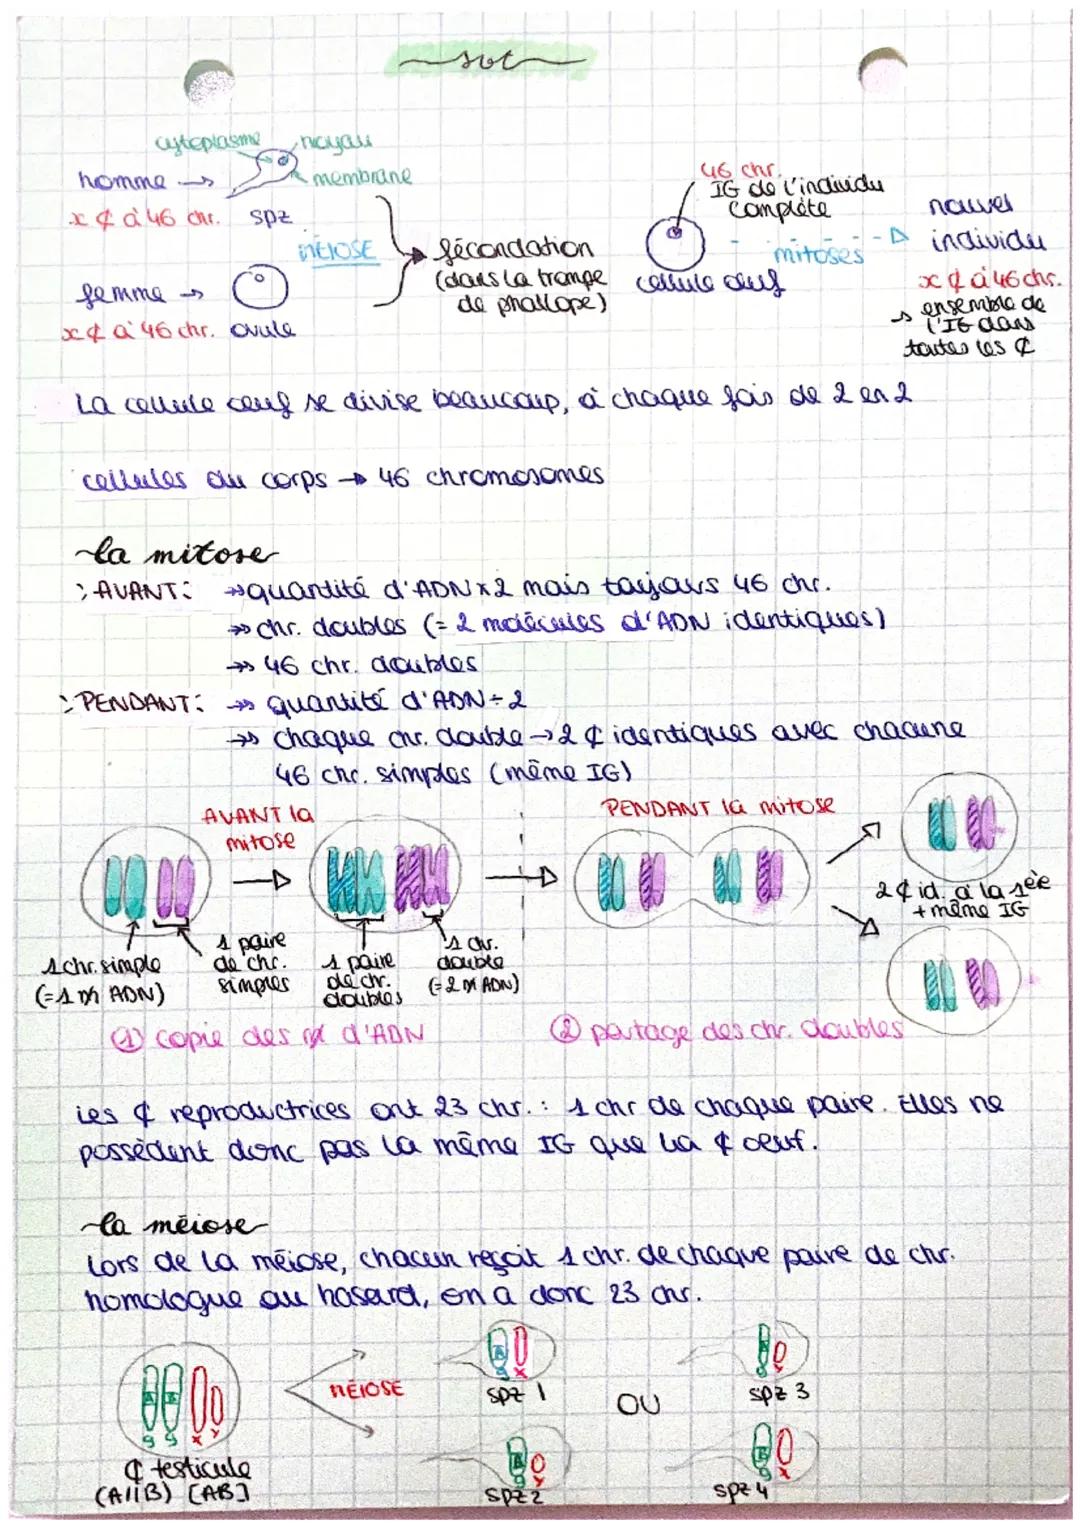 svt
cytoplasme noyau
homme → membrane
x ¢ à 46 chr. spz
MÉIOSE
femme →
x ¢ à 46 chr. ovule
fécondation
(dans la trompe
de phallope)
46 chr.
IG de l'individu
complète
cellule œuf
mitoses
nouvel
individu
x ¢ à 46 chr.
→ ensemble de
l'IG dans
toutes les ¢
La cellule œuf se divise beaucoup, à chaque fois de 2 en 2
cellules du corps → 46 chromosomes
la mitose
AVANT: →quantité d'ADN x2 mais toujours 46 chr.
→ chr. doubles (= 2 molécules d'ADN identiques)
→ 46 chr. doubles
PENDANT: → quantité d'ADN ÷ 2
→ chaque chr. double → 2 ¢ identiques avec chacune
46 chr. simples (même IG)
AVANT la
mitose
PENDANT la mitose
1 chr. simple
(= 1 m ADN)
1 paire
de chr.
simples
1 paire
de chr.
doubles
1 chr.
double
(= 2 m ADN)
2 ¢ id. à la 1ère
+ même IG
① copie des m d'ADN
② partage des chr. doubles
Les ¢ reproductrices ont 23 chr. : 1 chr de chaque paire. Elles ne
possèdent donc pas la même IG que la ¢ oeuf.
la méiose
Lors de la méiose, chacun reçoit 1 chr. de chaque paire de chr.
homologue au hasard, on a donc 23 chr.
A B
9 9 X Y
¢ testicule
(A//B) [AB]
MÉIOSE
A
9 X
spz 1
B
9 Y
spz 2
OU
9 Y
spz 3
B
9 X
spz 4